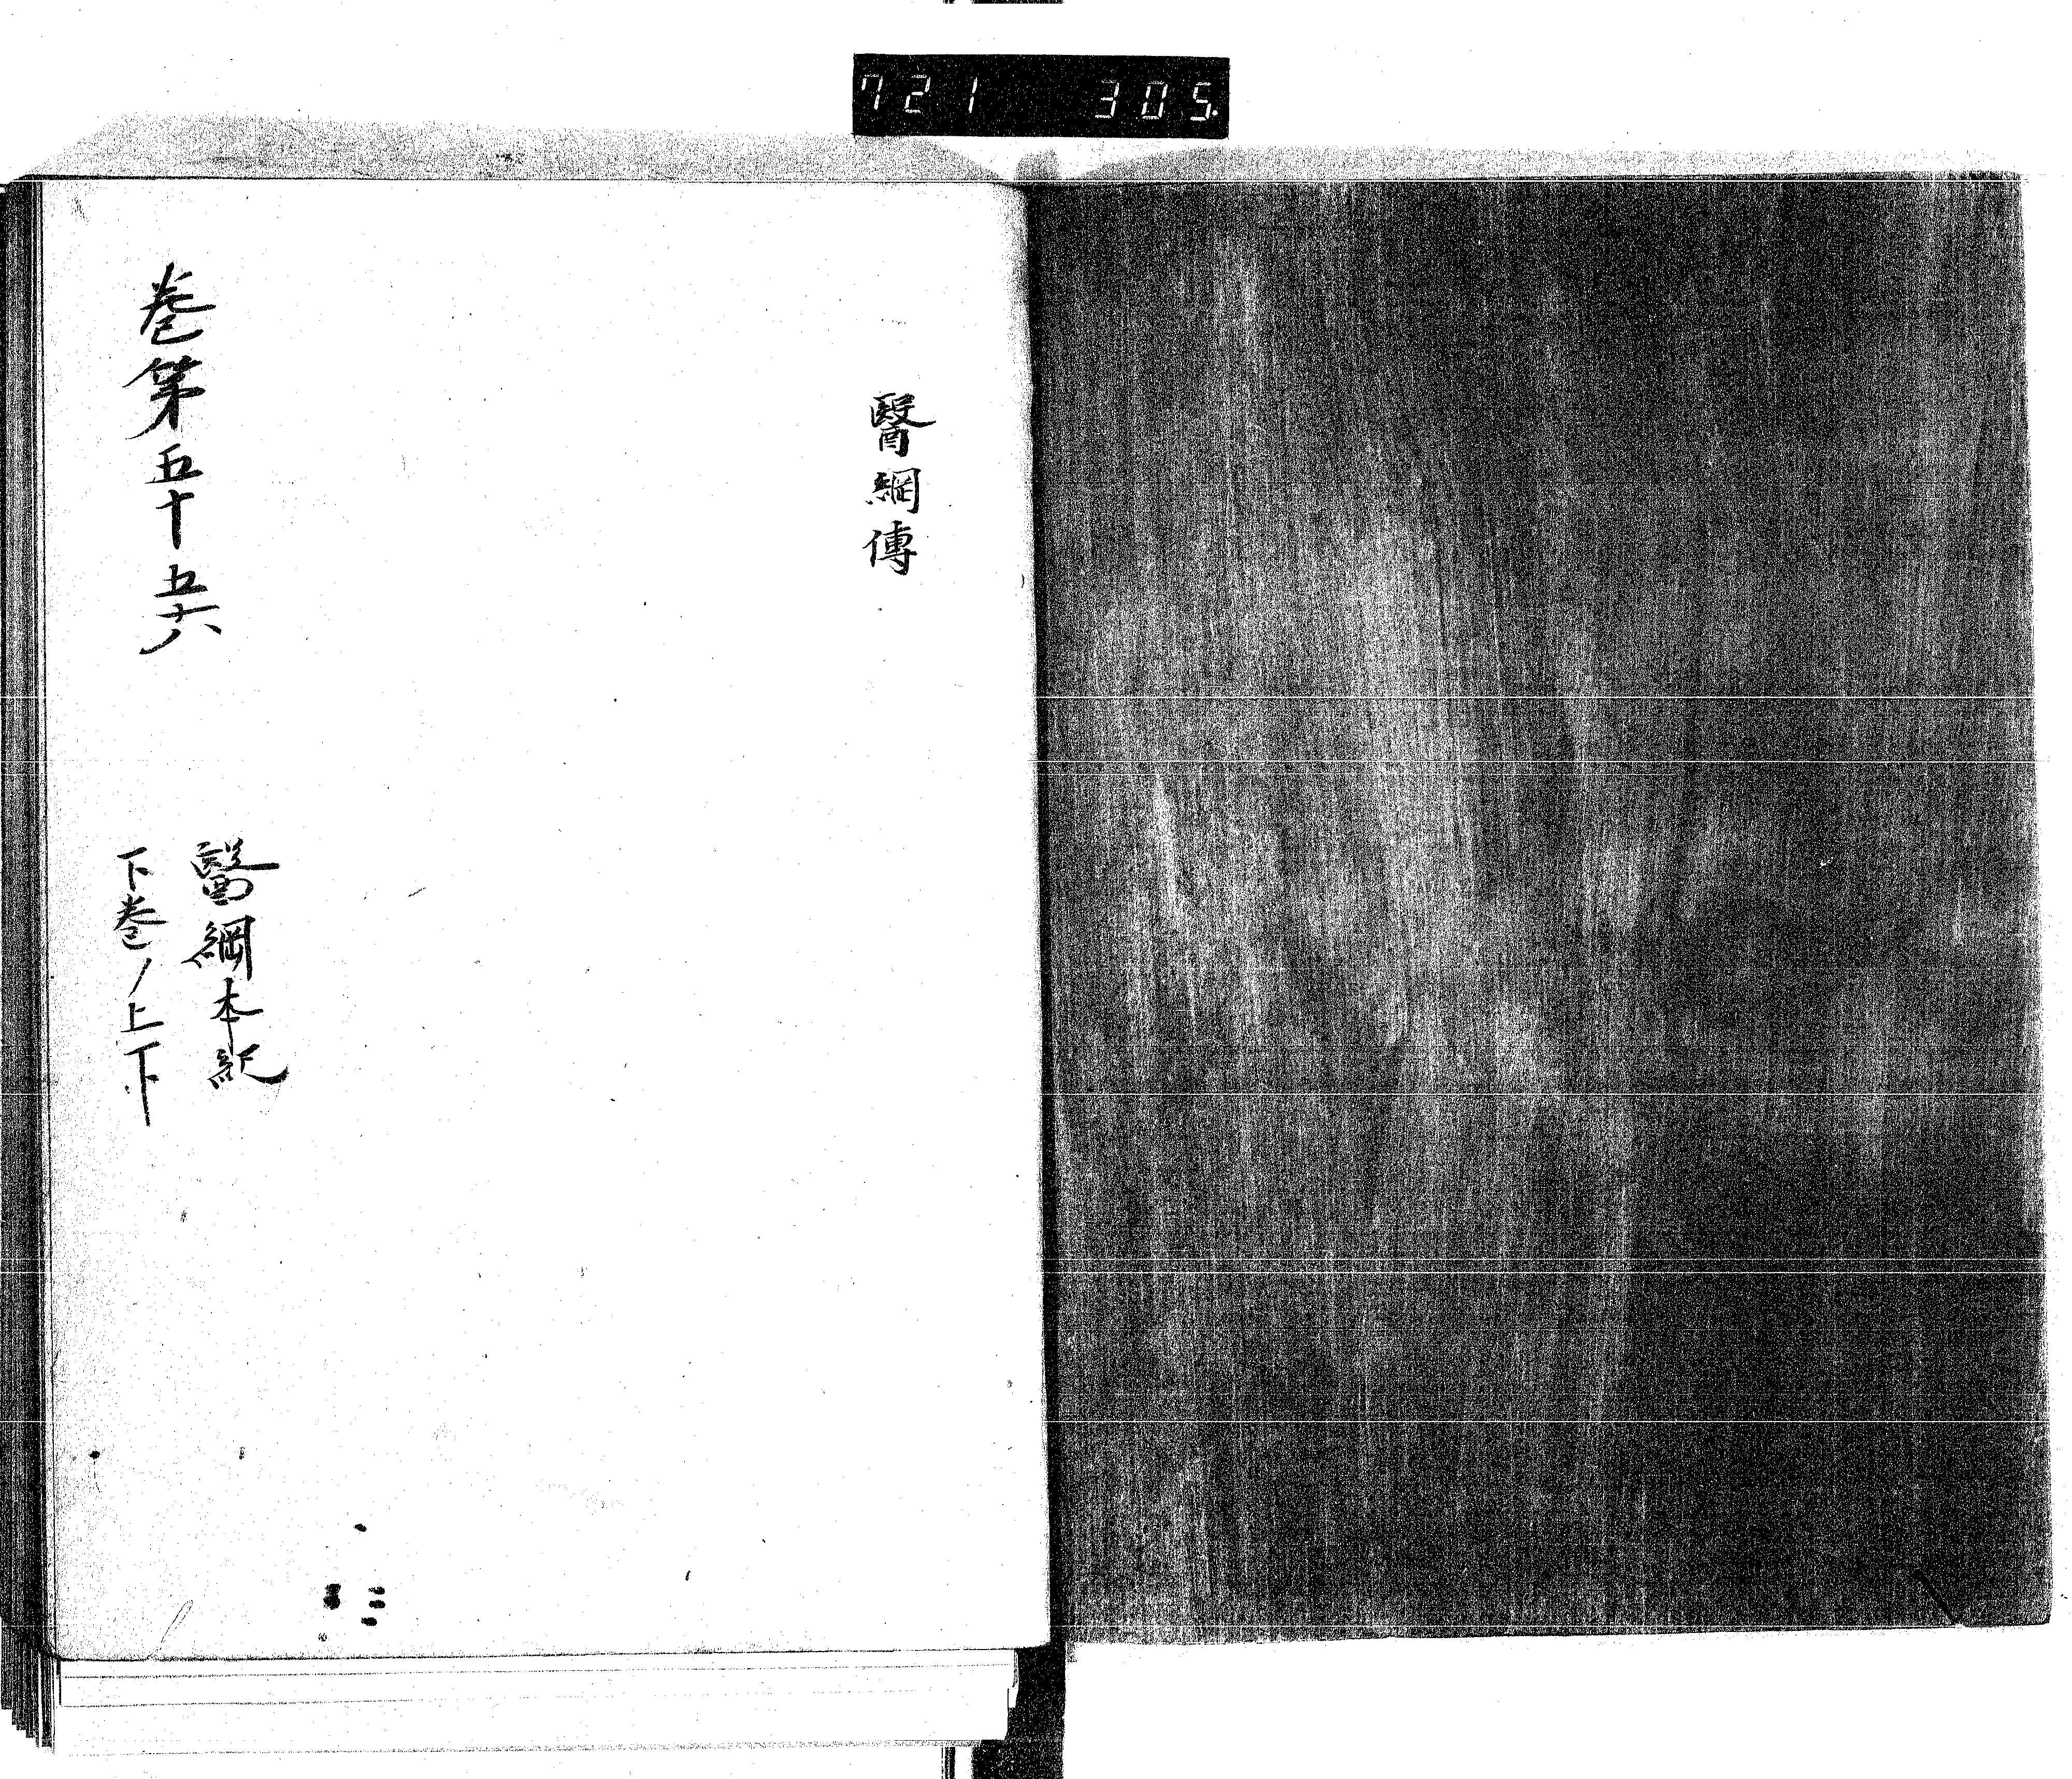 721 305
醫綱傳
卷第五十五六
醫綱本紀
下卷ノ上下